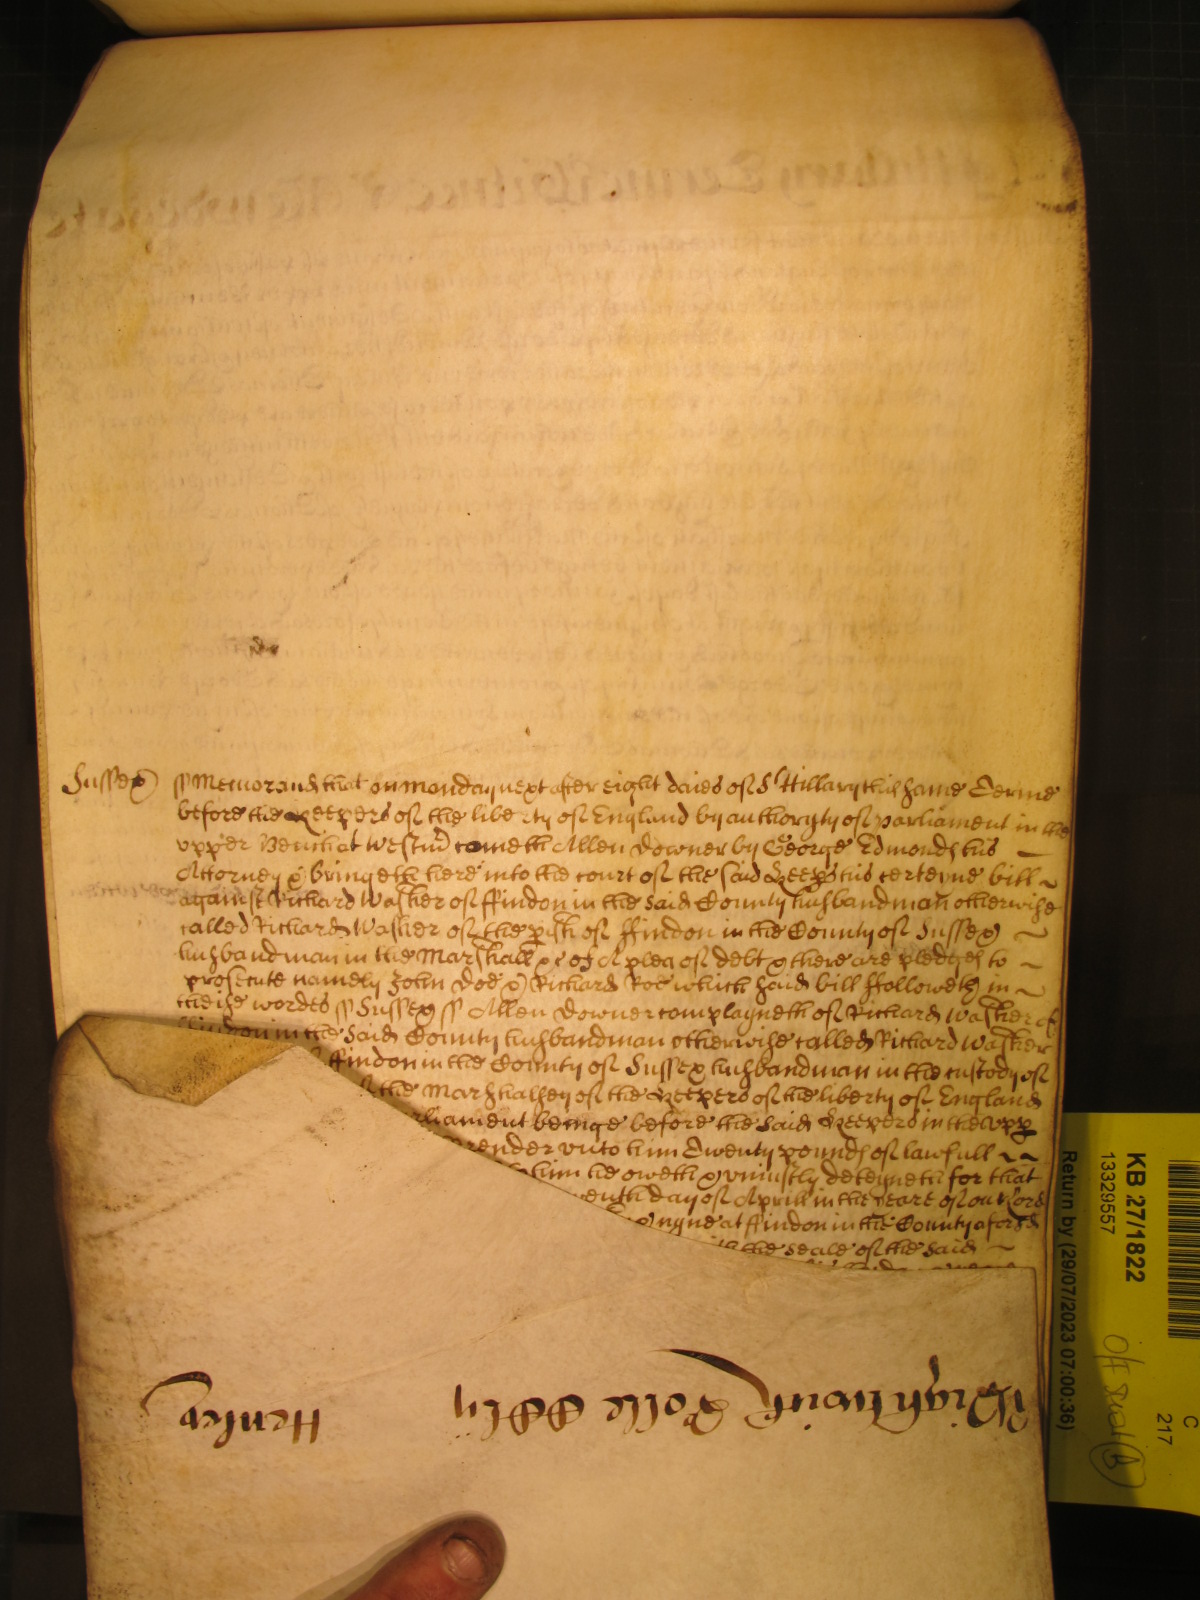 Sussex ss Memorand that on Monday next after eight daies of St Hillary this same Terme
before the Keepers of the liberty of England by authority of parliament in the
upper Bench at Westmr cometh Allen Downer by George Edmonds his
Attorney & bringeth here into the court of the said Keepers his certeyne bill
against Richard Washer of ffindon in the said County husbandman otherwise
called Richard Washer of the pish of ffindon in the County of Sussex
husbandman in the Marshall &c of A plea of debt & there are pledges to
prosecute namely John Doe & Richard Roe which said bill ffolloweth in
theise wordes ss Sussex ss Allen Downer complayneth of Richard Washer of
ffindon in the said County husbandman otherwise called Richard Washer
ffindon in the County of Sussex husbandman in the custody of
the Marshallsey of the Keepers of the liberty of England
parliament beinge before the said Keepers in the upp
render unto him Twenty pounds of lawfull
him he oweth & uniustly deteyneth for that
day of Aprill in the yeare of our Lord
at ffindon in the County aforesd
the seale of the said
Wightwick Rolle
Henley
KB 27/1822
13329557
Return by (29/07/2023 07:00:36)
C
217